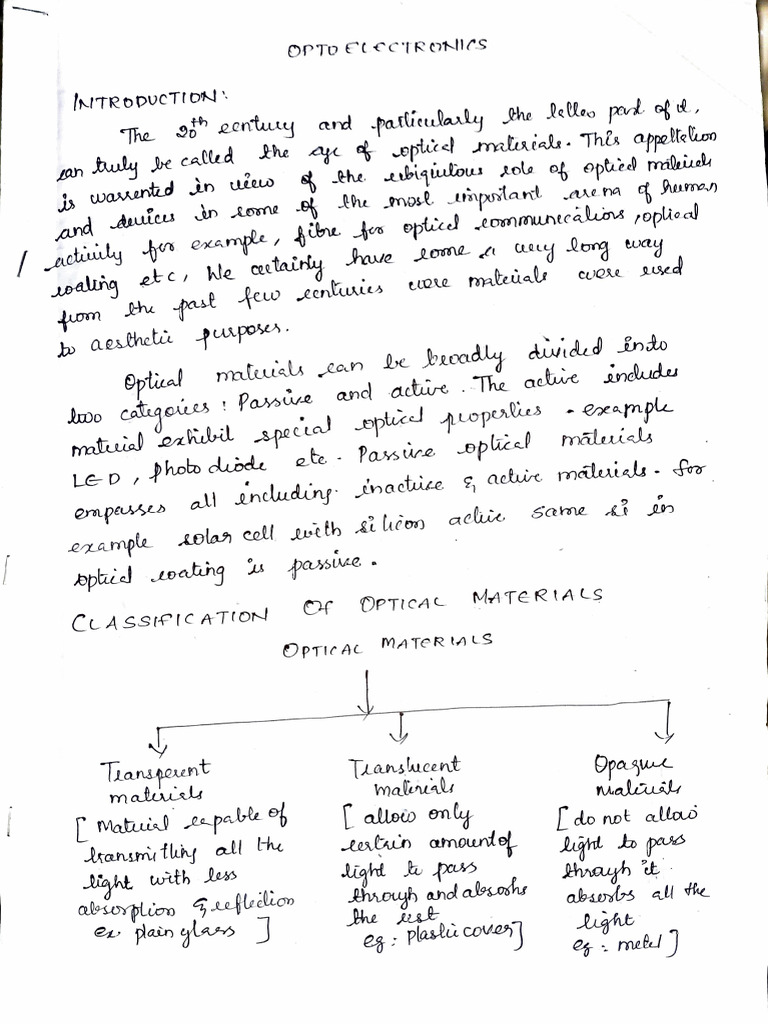 OPTO ELECTRONICS
INTRODUCTION:
The 20th century and particularly the latter part of it,
can truly be called the age of optical materials. This appellation
is warrented in view of the ubiquitous role of optical materials
and devices in some of the most important arena of human
activity for example, fibre for optical communications, optical
coating etc, We certainly have come a very long way
from the past few centuries were materials were used
to aesthetic purposes.
Optical materials can be broadly divided into
two categories: Passive and active. The active includes
material exhibit special optical properties. example
LED, photo diode etc. Passive optical materials
empasses all including inactive & active materials. for
example solar cell with silicon active same si in
optical coating is passive.
CLASSIFICATION OF OPTICAL MATERIALS
OPTICAL MATERIALS
Transperent
materials
[Material capable of
transmitting all the
light with less
absorption & reflection
ex. plain glass]
Translucent
materials
[allow only
certain amount of
light to pass
through and absorbs
the rest
eg: plastic cover]
Opaque
Materials
[do not allow
light to pass
through it.
absorbs all the
light
eg: metel]